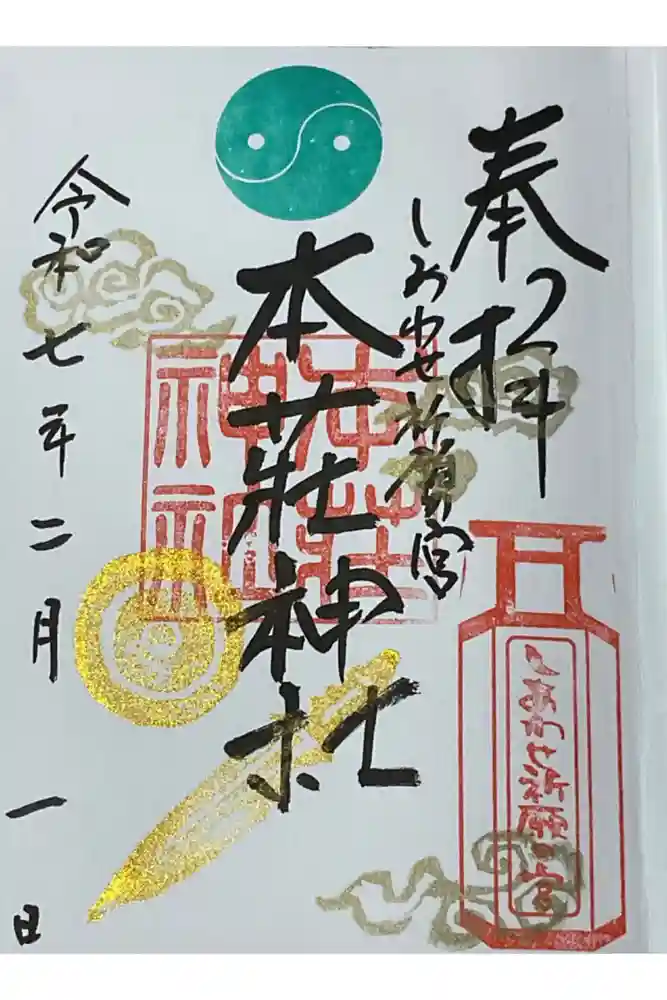 奉拝
しあわせ祈願宮
本荘神社
令和七年二月一日
本荘神社
しあわせ祈願の宮